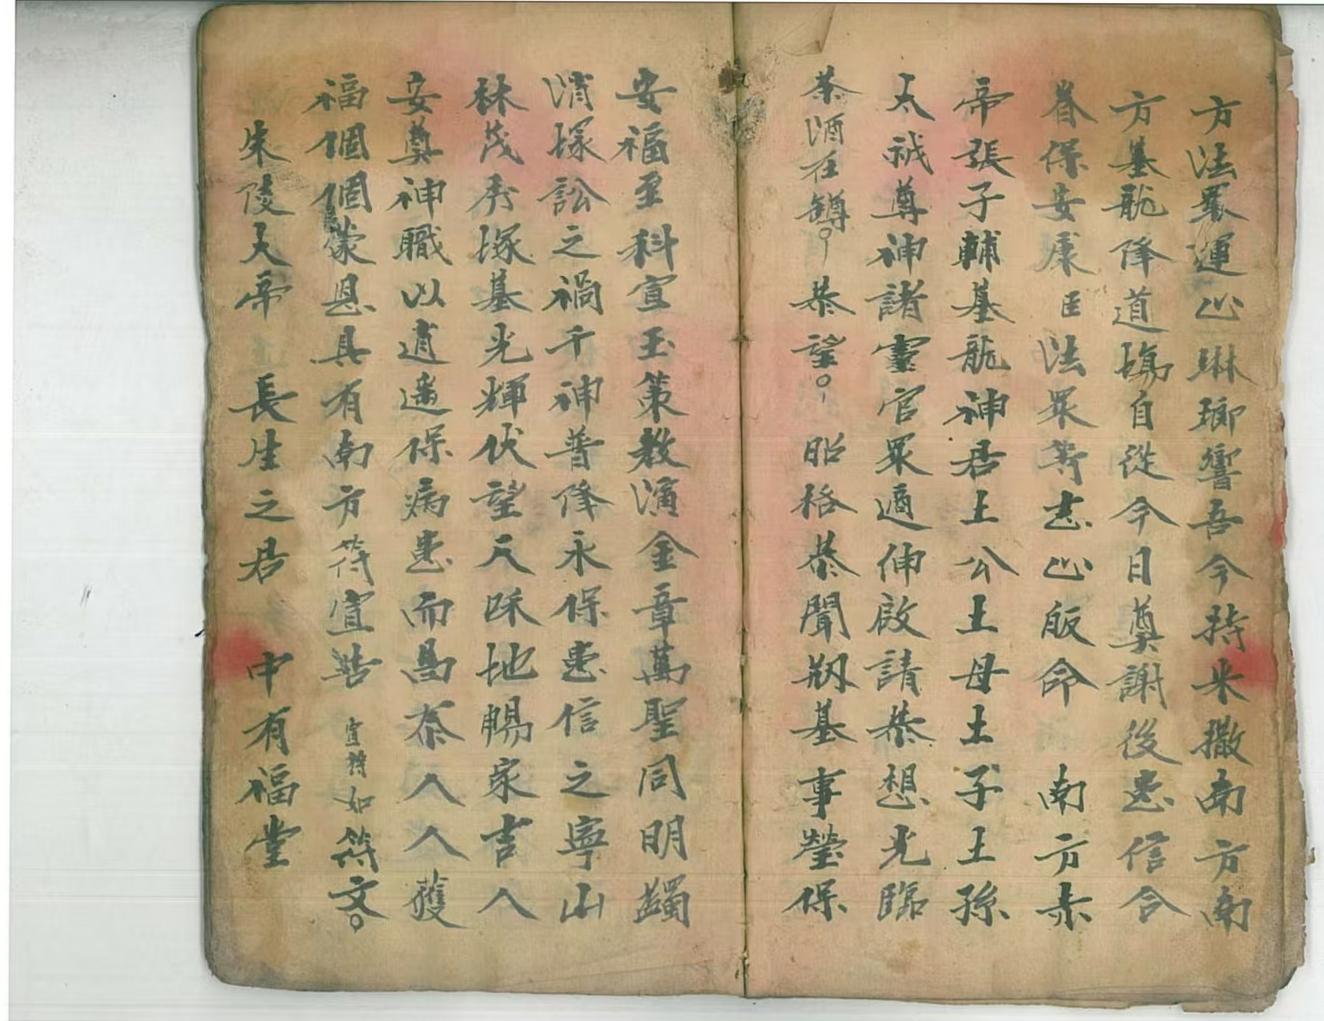 方法衆運心琳瑯響吾今持米撒南方南
方基龍降道塲自從今日奠謝後患信合
眷保安康臣法衆等志心皈命南方赤
帝張子輔基龍神君土公土母土子土孫
大誠尊神諸靈官衆適伸啟請恭想光臨
茶酒在罇恭望昭格恭聞刱基事瑩保
安福至科宣玉策教演金章萬聖同明蠲
消塚訟之禍千神普降永保患信之寧山
林茂秀塚基光輝伏望天䟽地賜家吉人
安奠神職以逍遥保病患而昌泰人人獲
福個個蒙恩具有南方符宣告宣符如符文
朱陵大帝長生之君中有福堂